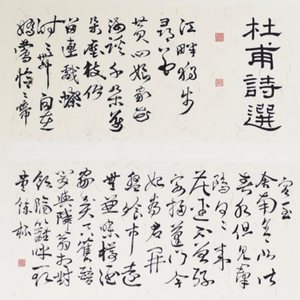 杜甫詩選
江畔獨步
尋花
黄四娘家花
滿蹊千朵萬
朵壓枝低
留連戲蝶
時時舞自在
嬌鶯恰恰啼
客至
舍南舍北皆
春水但見群
鷗日日來
花徑不曾緣
客掃蓬門今
始為君開
盤飧市遠
無兼味樽酒
家貧只舊醅
肯與鄰翁相對
飲隔籬呼取
盡餘杯